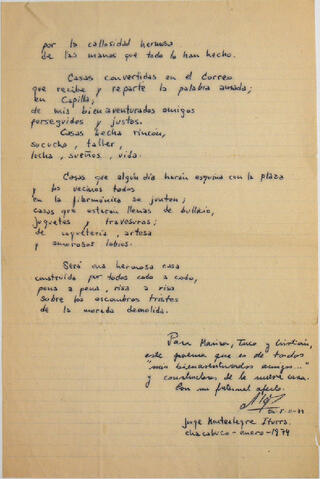 por la callosidad hermosa
de las manos que todo lo han hecho.
Casas convertidas en el Correo
que recibe y reparte la palabra amada;
en Capilla,
de mis bienaventurados amigos
perseguidos y justos.
Casas hecha rincón,
sucucho, taller,
lucha, sueños, vida.
Casas que algún día harán esquina con la plaza
y los vecinos todos
en la filarmónica se junten;
casas que estarán llenas de bullicio,
juguetes y travesuras;
de coquetería, artesa
y amorosos labios.
Será una hermosa casa
construida por todos codo a codo,
pena a pena, risa a risa
sobre los escombros tristes
de la morada demolida.
Para Marisa, Tuco y Cristián,
este poema que es de todos
"mis bienaventurados amigos..."
y constructores de la nueva casa.
Con mi fraternal afecto.
Jorge Montealegre Iturra
Chacabuco - enero - 1974